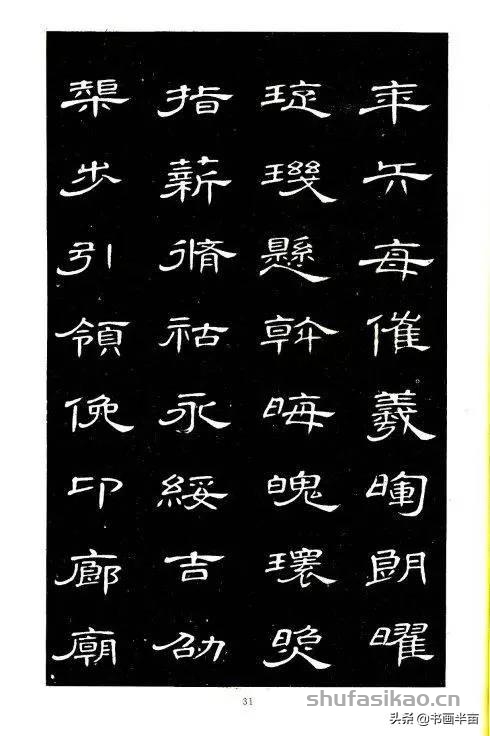 年矢每催羲暉朗曜
琁璣懸斡晦魄環照
指薪脩祜永綏吉劭
榘步引領俛卬廊廟
31
shufasikao.cn
头条@书画半亩